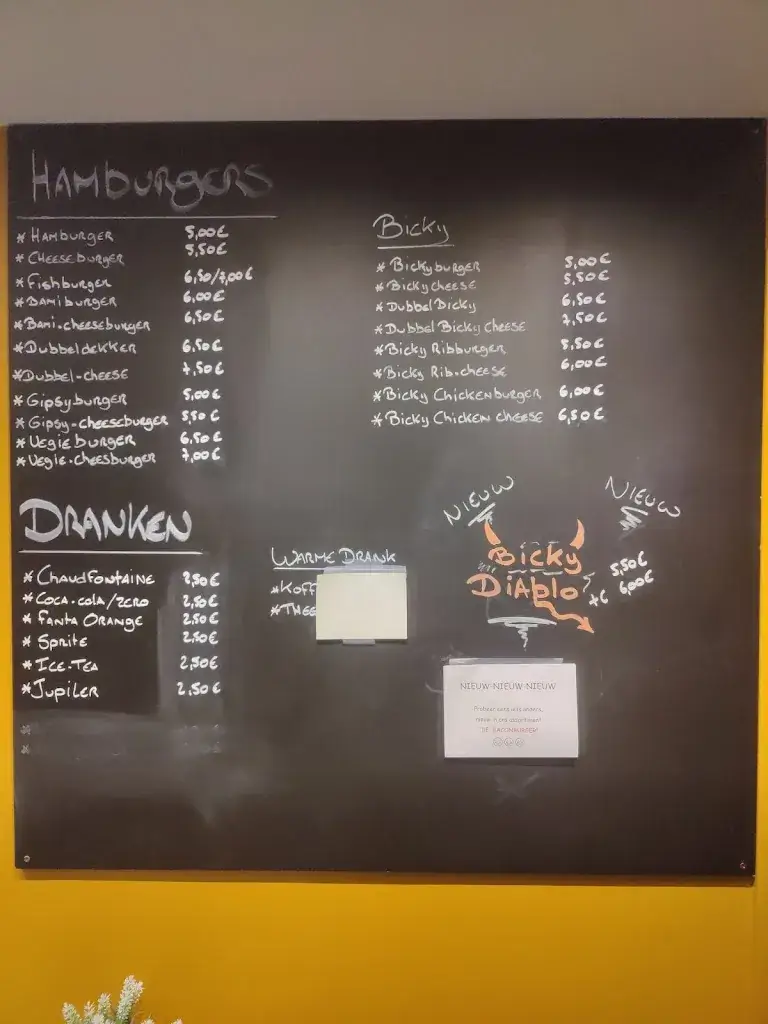 HAMBURGERS
* HAMBURGER 5,00€
* CHEESEBURGER 5,50€
* FISHBURGER 6,50/7,00€
* BAMIBURGER 6,00€
* BAMI-CHEESEBURGER 6,50€
* DUBBELDEKKER 6,50€
* DUBBEL-CHEESE 7,50€
* GIPSYBURGER 5,00€
* GIPSY-CHEESEBURGER 5,50€
* VEGIEBURGER 6,50€
* VEGIE-CHEESBURGER 7,00€
BICKY
* BICKYBURGER 5,00€
* BICKYCHEESE 5,50€
* DUBBEL BICKY 6,50€
* DUBBEL BICKY CHEESE 7,50€
* BICKY RIBBURGER 5,50€
* BICKY RIB-CHEESE 6,00€
* BICKY CHICKENBURGER 6,00€
* BICKY CHICKEN CHEESE 6,50€
DRANKEN
* CHAUDFONTAINE 2,50€
* COCA-COLA/ZERO 2,50€
* FANTA ORANGE 2,50€
* SPRITE 2,50€
* ICE-TEA 2,50€
* JUPILER 2,50€
WARME DRANK
* KOFF
* THEE
NIEUW NIEUW
BICKY
DIABLO 5,50€
+C 6,00€
NIEUW-NIEUW-NIEUW
Probeer eens iets anders,
nieuw in ons assortiment
DE BACONBURGER